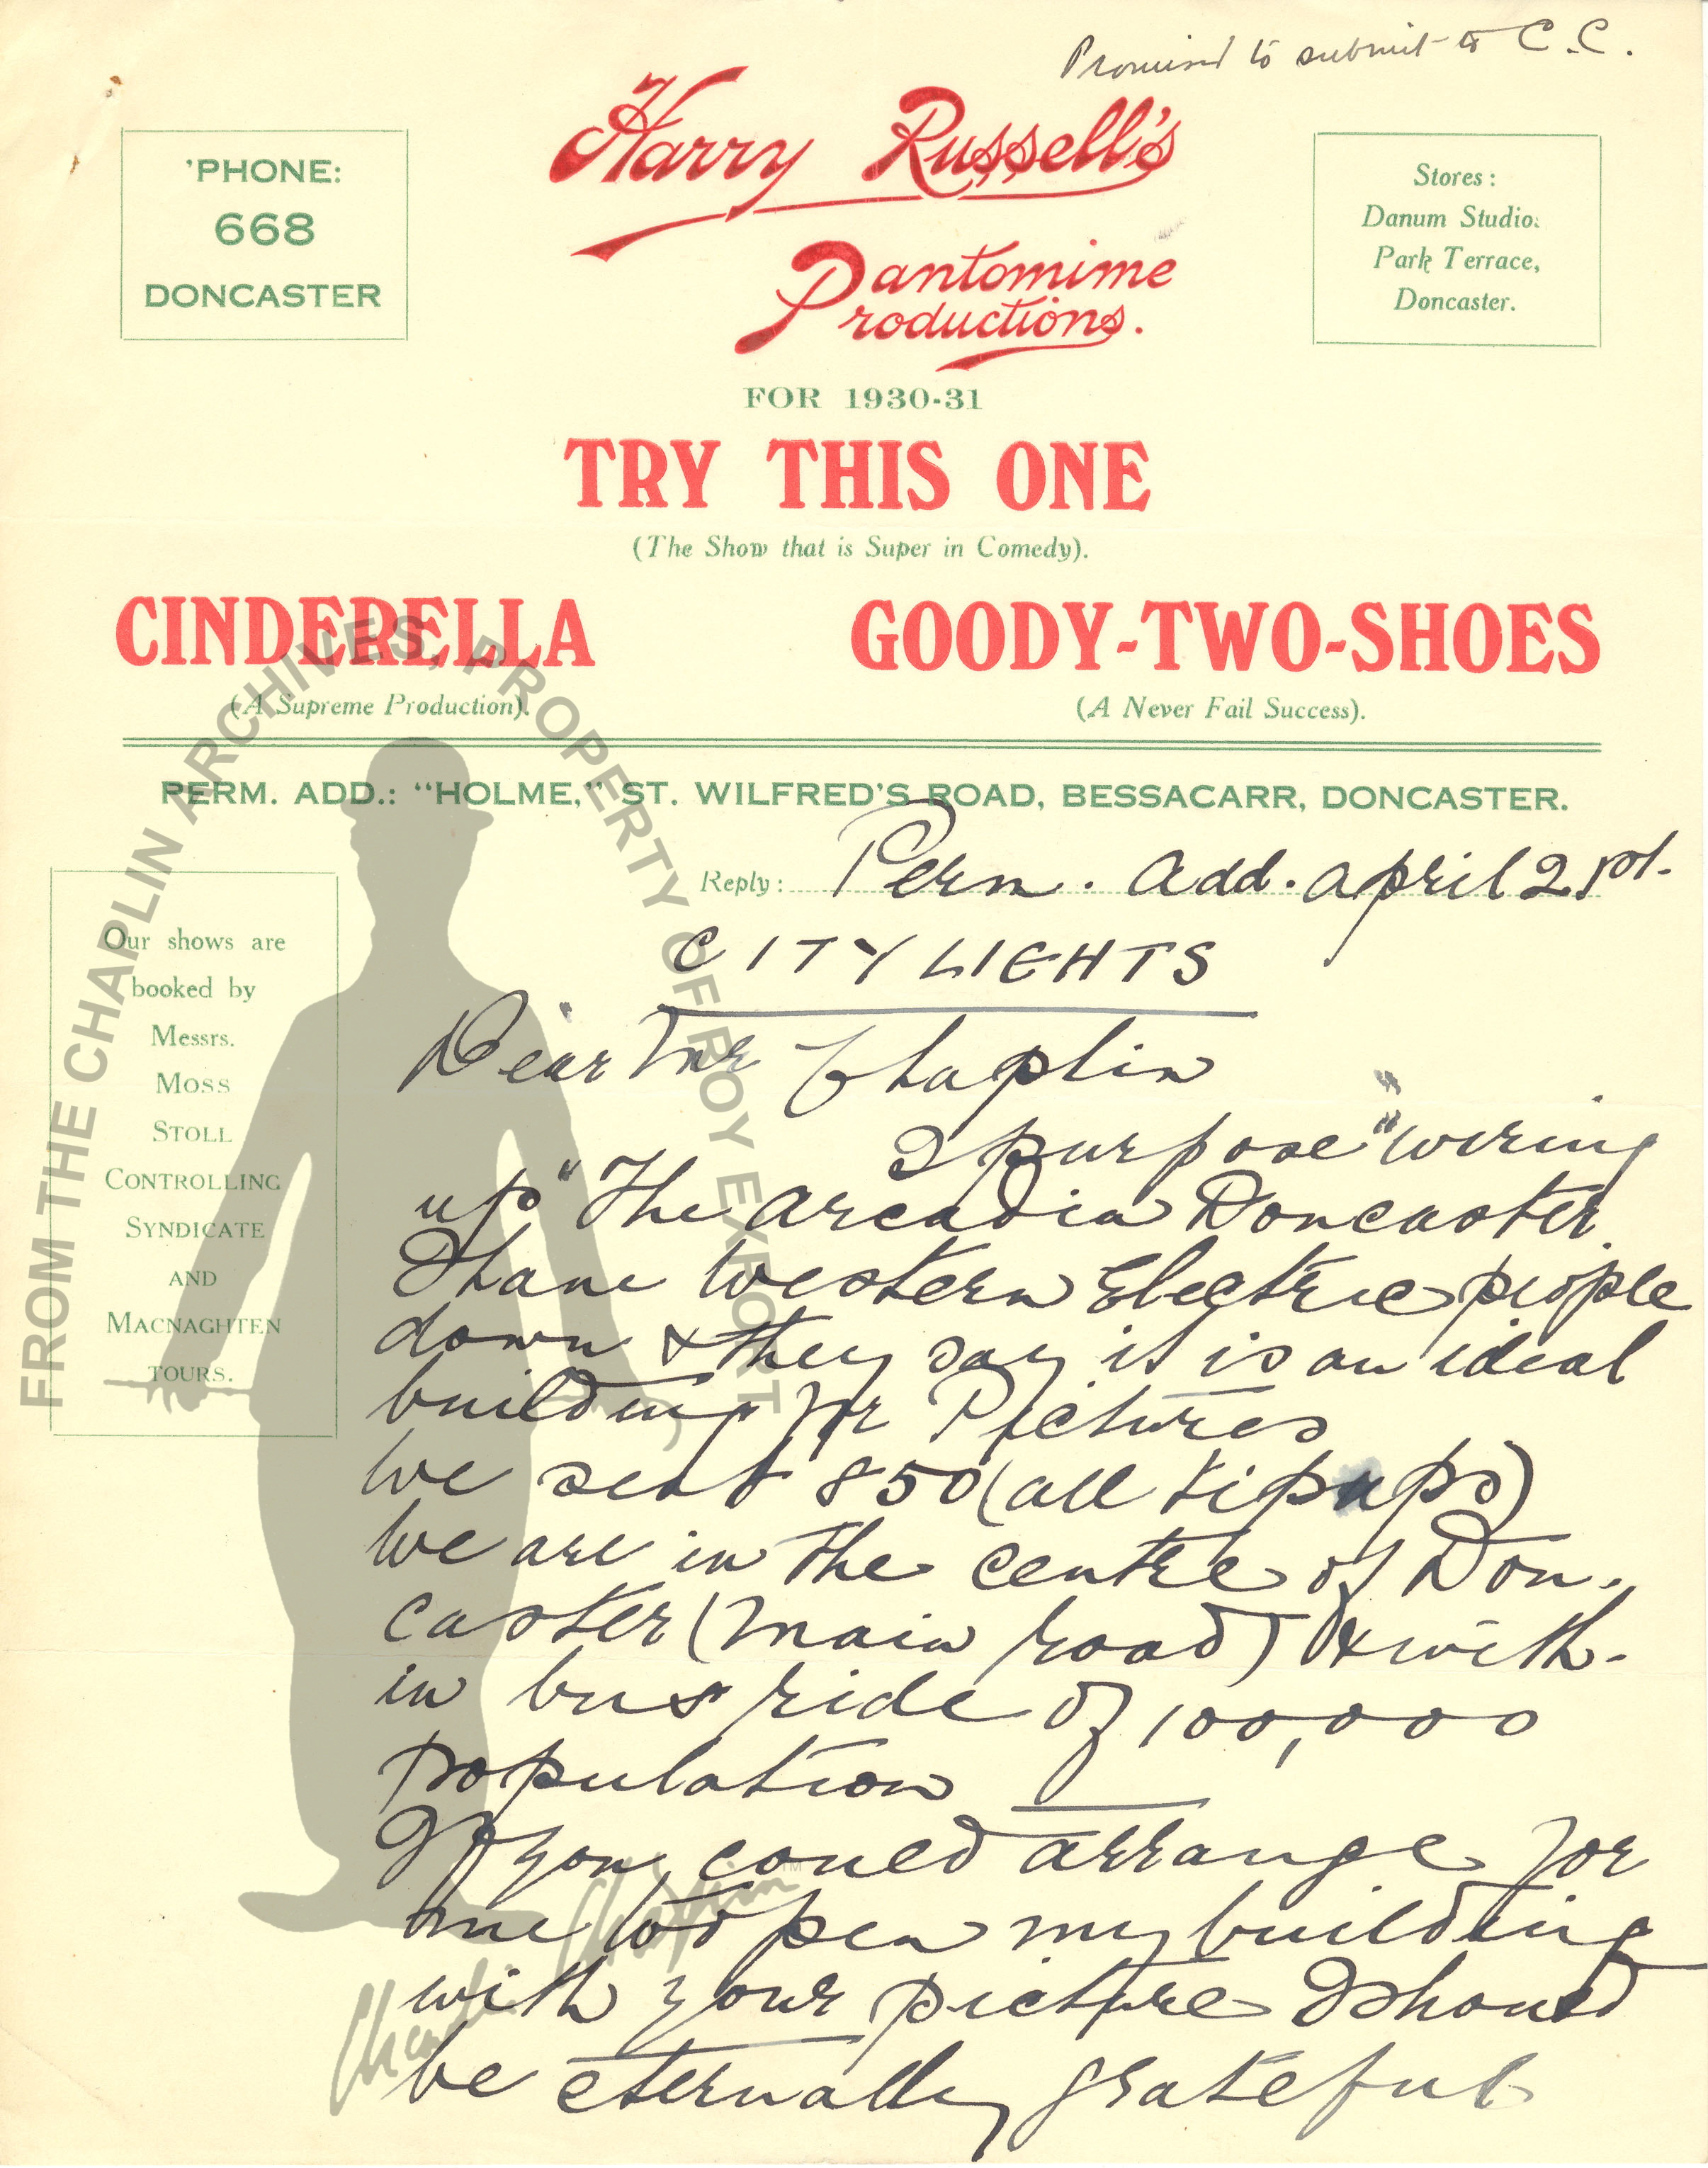 Promised to submit to C.C.
'PHONE:
668
DONCASTER
Harry Russell's
Pantomime
Productions.
Stores:
Danum Studio.
Park Terrace,
Doncaster.
FOR 1930-31
TRY THIS ONE
(The Show that is Super in Comedy).
CINDERELLA
(A Supreme Production).
GOODY-TWO-SHOES
(A Never Fail Success).
PERM. ADD.: "HOLME," ST. WILFRED'S ROAD, BESSACARR, DONCASTER.
Reply: Perm. Add. April 21st.
Our shows are
booked by
Messrs.
MOSS
STOLL
CONTROLLING
SYNDICATE
AND
MACNAGHTEN
TOURS.
CITY LIGHTS
Dear Mr Chaplin
I purpose "wiring
up" The Arcadia Doncaster.
I have Western Electric people
down & they say it is an ideal
building for Pictures
We seat 850 (all tip ups)
We are in the centre of Don-
caster (main road) & with-
in bus ride of 100,000
population
If you could arrange for
me to open my building
with your picture I should
be eternally grateful
FROM THE CHAPLIN ARCHIVES, PROPERTY OF ROY EXPORT
Charlie Chaplin
TM